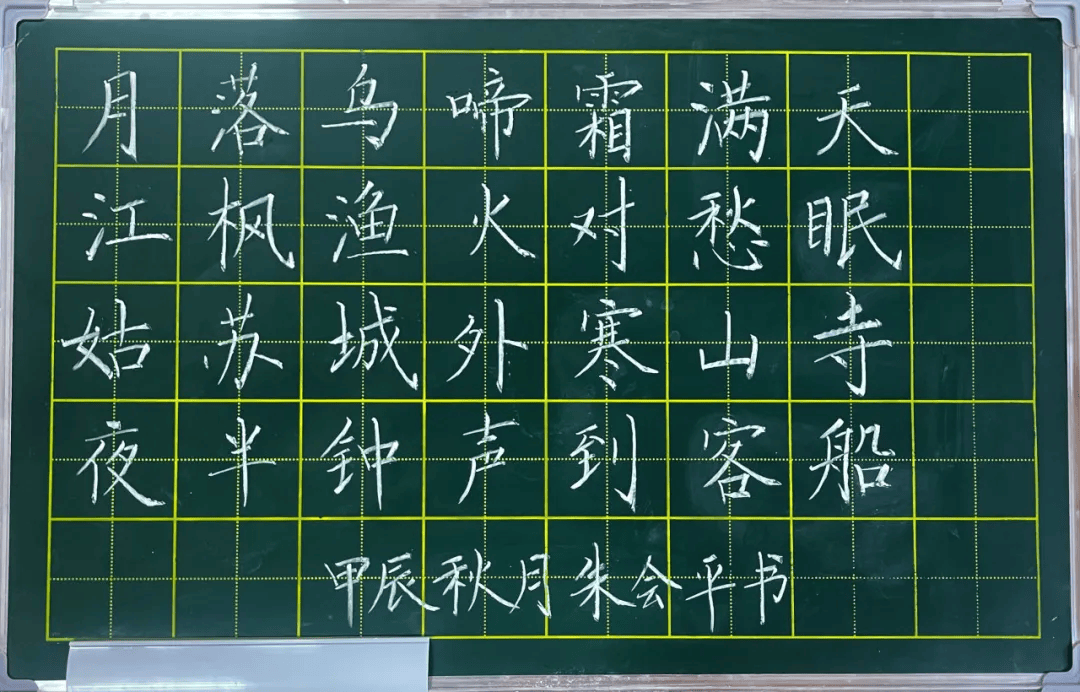 月落乌啼霜满天
江枫渔火对愁眠
姑苏城外寒山寺
夜半钟声到客船
甲辰秋月朱会平书